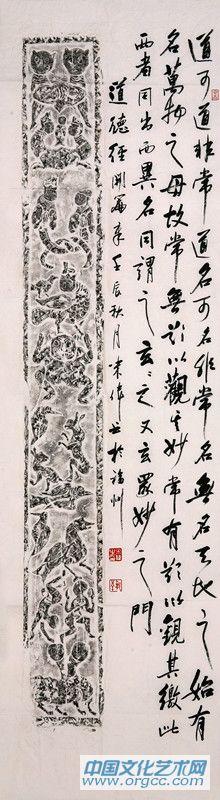 道可道非常道名可名非常名無名天地之始有
名萬物之母故常無欲以觀其妙常有欲以觀其徼此
兩者同出而異名同謂之玄玄之又玄眾妙之門
道德經開篇章壬辰秋月宋偉書於福州
中国文化艺术网
www.orgcc.com